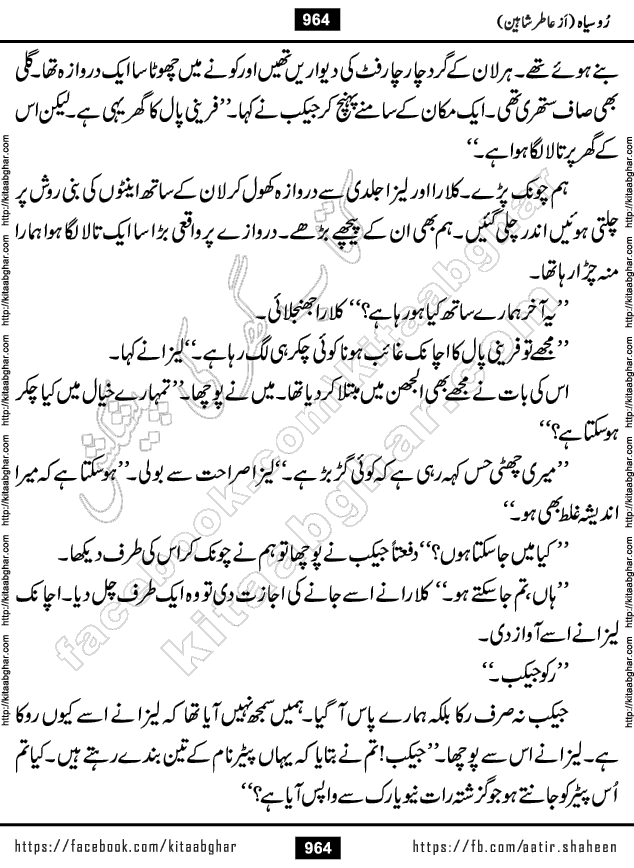 رُو سیاہ (از عاطر شاہین)
964
بنے ہوئے تھے۔ ہر لان کے گرد چار چار فٹ کی دیواریں تھیں اور کونے میں چھوٹا سا ایک دروازہ تھا۔ گلی
بھی صاف ستھری تھی۔ ایک مکان کے سامنے پہنچ کر جیکب نے کہا۔ ’’فرینی پال کا گھر یہی ہے۔ لیکن اس
کے گھر پر تالا لگا ہوا ہے۔‘‘
ہم چونک پڑے۔ کلارا اور لیزا جلدی سے دروازہ کھول کر لان کے ساتھ اینٹوں کی بنی روش پر
چلتی ہوئیں اندر چلی گئیں۔ ہم بھی ان کے پیچھے بڑھے۔ دروازے پر واقعی بڑا سا ایک تالا لگا ہوا ہمارا
منہ چڑا رہا تھا۔
’’یہ آخر ہمارے ساتھ کیا ہو رہا ہے؟‘‘ کلارا جھنجلائی۔
’’مجھے تو فرینی پال کا اچانک غائب ہونا کوئی چکر ہی لگ رہا ہے۔‘‘ لیزا نے کہا۔
اس کی بات نے مجھے بھی الجھن میں مبتلا کر دیا تھا۔ میں نے پوچھا۔ ’’تمہارے خیال میں کیا چکر
ہو سکتا ہے؟‘‘
’’میری چھٹی حس کہہ رہی ہے کہ کوئی گڑ بڑ ہے۔‘‘ لیزا صراحت سے بولی۔ ’’ہو سکتا ہے کہ میرا
اندیشہ غلط بھی ہو۔‘‘
’’کیا میں جا سکتا ہوں؟‘‘ دفعتاً جیکب نے پوچھا تو ہم نے چونک کر اس کی طرف دیکھا۔
’’ہاں، تم جا سکتے ہو۔‘‘ کلارا نے اسے جانے کی اجازت دی تو وہ ایک طرف چل دیا۔ اچانک
لیزا نے اسے آواز دی۔
’’رکو جیکب۔‘‘
جیکب نہ صرف رکا بلکہ ہمارے پاس آ گیا۔ ہمیں سمجھ نہیں آیا تھا کہ لیزا نے اسے کیوں روکا
ہے۔ لیزا نے اس سے پوچھا۔ ’’جیکب! تم نے بتایا کہ یہاں پیٹر نام کے تین بندے رہتے ہیں۔ کیا تم
اُس پیٹر کو جانتے ہو جو گزشتہ رات نیویارک سے واپس آیا ہے؟‘‘
کتاب گھر کی پیشکش
facebook.com/kitaabghar
kitaabghar.com
http://kitaabghar.com http://kitaabghar.com http://kitaabghar.com http://kitaabghar.com http://kitaabghar.com http://kitaabghar.com
http://kitaabghar.com http://kitaabghar.com http://kitaabghar.com http://kitaabghar.com http://kitaabghar.com http://kitaabghar.com
https://facebook.com/kitaabghar
964
https://fb.com/aatir.shaheen